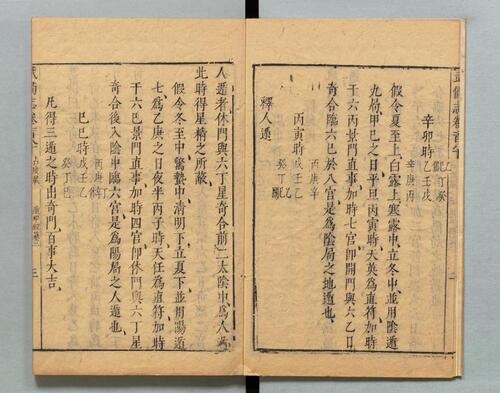 辛卯時
乙壬戌
辛庚丙
假令夏至上白露上寒露中立冬中並用陰遁
九局甲己之日平旦丙寅時天英爲直符加時
干六丙景門直事加時七宮卽開門與六乙日
奇合臨六己於八宮是爲陰局之地遁也
丙寅時
戊壬乙
丙庚辛
癸丁
釋人遁
人遁者休門與六丁星奇合前二太陰中爲人遁
此時得星精之所蔽
假令冬至中驚蟄中清明下立夏下並用陽遁
七爲乙庚之日夜半丙子時天任爲直符加時
干六己景門直事加時四宮卽休門與六丁星
奇合後入陰中臨六宮是爲陽局之人遁也
己巳時
戊壬乙
丙庚
癸丁巳
凡得三遁之時出奇門百事大吉
三